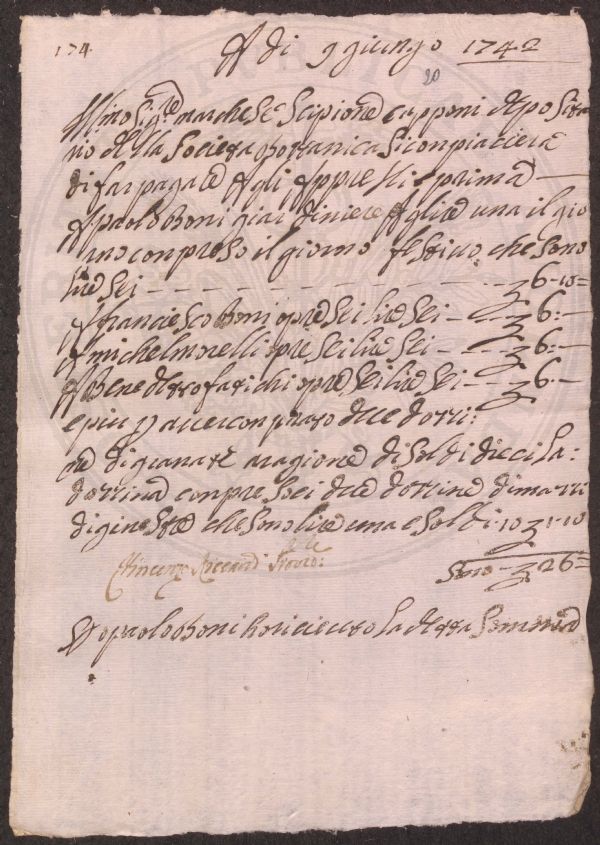 174
A di 9 giungo 1742
20
Ill.mo Sig.re Marchese Scipione Capponi depo sita
rio della Società Bottanica Si conpiacierà
di far pagare Agli Appresti prima —
A paolo Boni giardiniere Aglire una il gio
rno conpreso il giorno festivo, che sono
lire sei — 6-10=
A franciesco Boni opre sei lire sei — 6:—
A michel morelli opre sei lire sei — 6:—
A Benedetto opre sei lire sei — 6:—
e piu p aver conprato due dozzi:
ne di granate a ragione di soldi dieci la:
dozzina conpresoci due dozzine di mazzi
di ginestre che sono lire una e soldi 10 1-10
Vincenzo
Sono — 26=
Io paolo Boni ho riceuto la detta somma